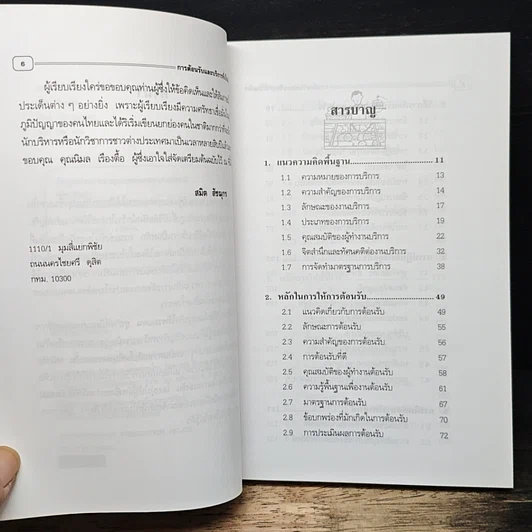 6
การต้อนรับและบริการที่
ผู้เรียบเรียงใคร่ขอขอบคุณท่านผู้ซึ่งให้ข้อคิดเห็นและ
ประเด็นต่าง ๆ อย่างยิ่ง เพราะผู้เรียบเรียงมีความศรัทธา
ภูมิปัญญาของคนไทยและได้ริเริ่มเขียนยกย่องคนในชาติมากกว่า
นักบริหารหรือนักวิชาการชาวต่างประเทศมาเป็นเวลาหลายสิบปี
ขอบคุณ คุณนิมล เรืองตื้อ ผู้ซึ่งเอาใจใส่จัดเตรียมต้นฉบับไว้ ณ
สมิต สัชฌุกร
1110/1 มุมสี่แยกพิชัย
ถนนนครไชยศรี ดุสิต
กทม. 10300
สารบาญ
1. แนวความคิดพื้นฐาน 11
1.1 ความหมายของการบริการ 13
1.2 ความสำคัญของการบริการ 14
1.3 ลักษณะของงานบริการ 17
1.4 ประเภทของการบริการ 19
1.5 คุณสมบัติของผู้ทำงานบริการ 22
1.6 จิตสำนึกและทัศนคติต่องานบริการ 32
1.7 การจัดทำมาตรฐานการบริการ 38
2. หลักในการให้การต้อนรับ 49
2.1 แนวคิดเกี่ยวกับการต้อนรับ 49
2.2 ลักษณะการต้อนรับ 55
2.3 ความสำคัญของการต้อนรับ 56
2.4 การต้อนรับที่ดี 57
2.5 คุณสมบัติของผู้ทำงานต้อนรับ 58
2.6 ความรู้พื้นฐานเพื่องานต้อนรับ 61
2.7 มาตรฐานการต้อนรับ 67
2.8 ข้อบกพร่องที่มักเกิดในการต้อนรับ 70
2.9 การประเมินผลการต้อนรับ 72